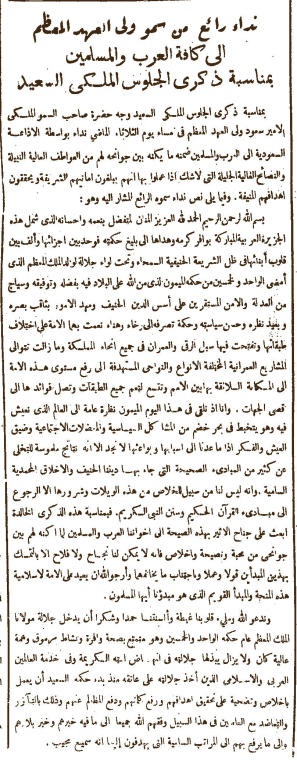 نداء رائع من سمو ولى العهد المعظم
الى كافة العرب والمسلمين
بمناسبة ذكرى الجلوس الملكى السعيد
بمناسبة ذكرى الجلوس الملكى السعيد وجه حضرة صاحب السمو الملكى
الامير سعود ولى العهد المعظم فى مساء يوم الثلاثاء الماضى نداء بواسطة الاذاعة
السعودية الى العرب والمسلمين ضمنه ما يكنه بين جوانحه لهم من العواطف العالية النبيلة
والنصائح الغالية الجليلة التى لاشك اذا عملوا بها انهم يبلغون امانيهم الشريفة ويحققون
اهدافهم المنيفة . وفيا يلى نص نداء سموه الرائع المشار اليه وهو :
بسم الله الرحمن الرحيم الحمد لله العزيز المنان المتفضل بنعمه واحسانه الذى شمل هذه
الجزيرة العربية المباركة بوافر كرمه وهداها الى بليغ حكمته فوحد بين اجزائها وألف بين
قلوب أبنائها فى ظل الشريعة الحنيفية السمحاء وتحت لواء جلالة والد الملك المعظم الذى
أمضى الواحد والخمسين من حكمه الميمون الذى من الله على البلاد فيه بفضله وتوفيقه وسياج
من العدالة والامن المستقرين على أسس الدين الحنيف ومهد الامور بثاقب بصره
وبعيد نظره وحسن سياسته وحكمة تصرفه الى رخاء وهناء نعمت بها الامة على اختلاف
طبقاتها وتفتحت فيها سبل الرقى والعمران فى جميع انحاء المملكة وما زالت تتوالى
المشاريع العمرانية المختلفة الانواع والنواحى المستهدفة الى رفع مستوى هذه الامة
الى المكانة اللائقة بها بين الامم وتتسع لتعم جميع الطبقات وتصل فوائدها الى
قصى الجهات . وانا اذ نلقى فى هذا اليوم الميمون نظرة عامة الى العالم الذى نعيش
فيه وهو يتخبط فى بحر خضم من المشاكل السياسية والمعضلات الاجتماعية وضيق
العيش والفكر اذا ما عدنا الى اسبابها وبواعثها لا نجد الا انه نتائج ملموسة للتخلى
عن كثير من المبادىء الصحيحة التى جاء بها ديننا الحنيف والاخلاق المحمدية
السامية . وانه ليس لنا من سبيل للخلاص من هذه الويلات وشرورها الا الرجوع
الى مبادىء القرآن الحكيم وسنن النبى الكريم . فبمناسبة هذه الذكرى الخالدة
ابعث على جناح الاثير بهذه الصيحة الى اخواننا العرب والمسلمين لما اكنه لهم بين
جوانحى من محبة ونصيحة واخلاص فانه لا يمكن لنا نجاح ولا فلاح الا بالتمسك
بهذين المبدأين قولا وعملا واجتناب ما يخالفهما وأرجو الله أن يعيد على الامة الاسلامية
هذه المنحة والمبدأ القويم الذى هو مبدؤنا أيها المسلمون .
وندعو الله وملء قلوبنا غبطة وألسنتنا حمدا وشكرا أن يدخل جلالة مولانا
الملك المعظم عام حكمه الواحد والخمسين وهو متمتع بصحة وافرة ونشاط مرموق وهمة
عالية كان ولا يزال يبذلها جلالته فى انهاض امته الكريمة وفى خدمة العالمين
العربى والاسلامى الذين أخذ جلالته على عاتقه منذ بدء حكمه السعيد أن يعمل
باخلاص وتضحية على تحقيق اهدافهم ورفع كيانهم ودفع المظالم عنهم وذلك بالتآزر
والتعاضد مع العاملين فى هذا السبيل وفقهم الله جميعا الى ما فيه خيرهم وخير بلادهم
والى ما يرفع بهم الى المراتب السامية التى يهدفون اليها انه سميع مجيب .